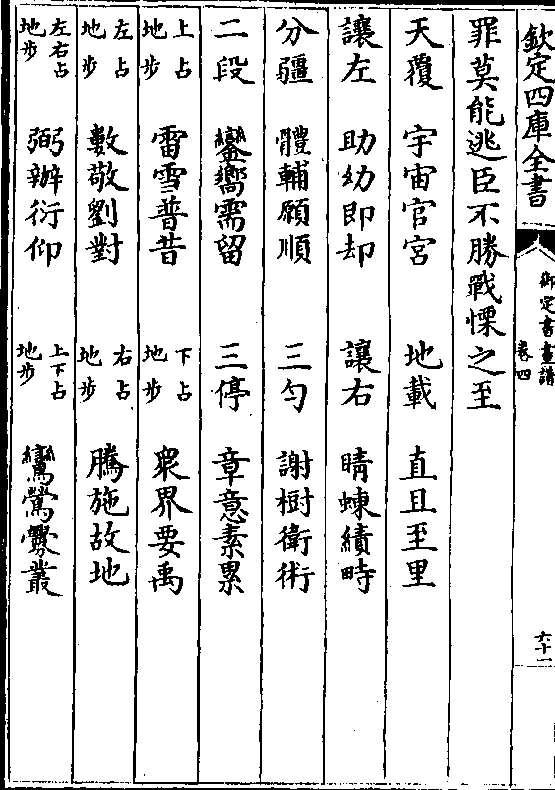 欽定四庫全書
御定書畫譜
卷四
六十一
罪莫能逃臣不勝戰慄之至
天覆 宇宙官宮 地載 直且至里
讓左 助幼即却 讓右 晴蝀績時
分疆 體輔願順 三勻 謝樹衛術
二段 鑾嚮需留 三停 章意素累
上占地步 雷雪普昔 下占地步 衆界要禹
左占地步 數敬劉對 右占地步 騰施故地
左右占地步 弼辦衍仰 上下占地步 鸞鶯叢